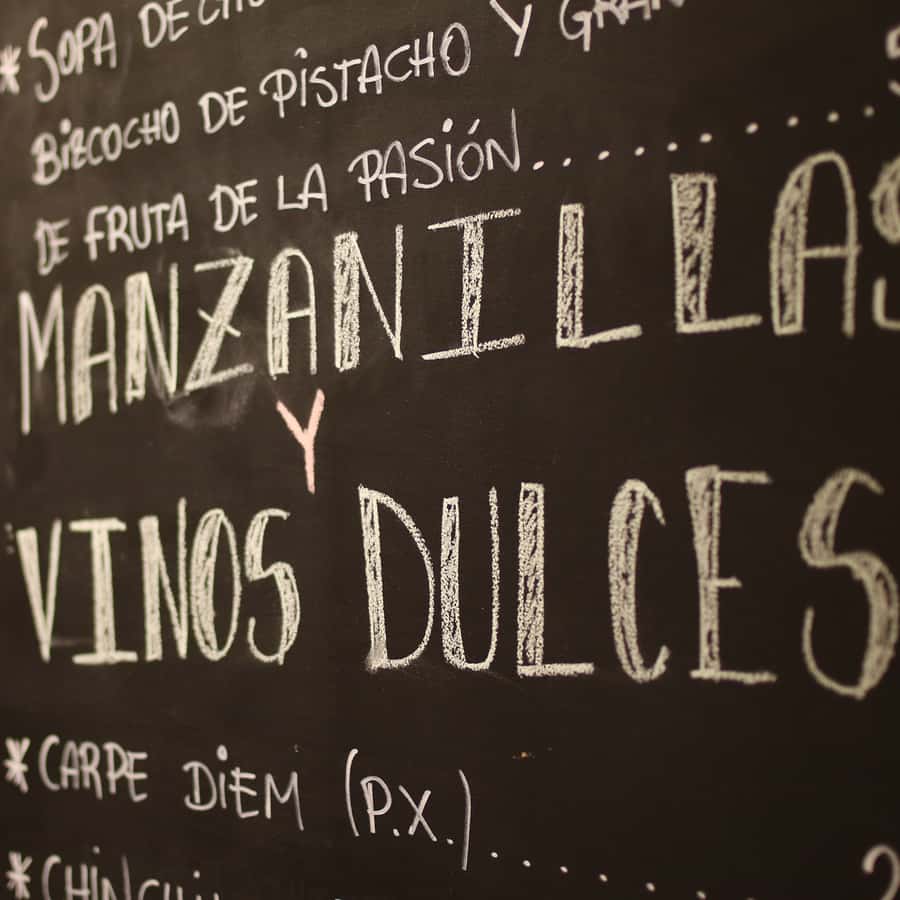 *SOPA DE
BIZCOCHO DE PISTACHO Y
DE FRUTA DE LA PASIÓN..............
MANZANILLAS
Y
VINOS DULCES
*CARPE DIEM (P.X.).......